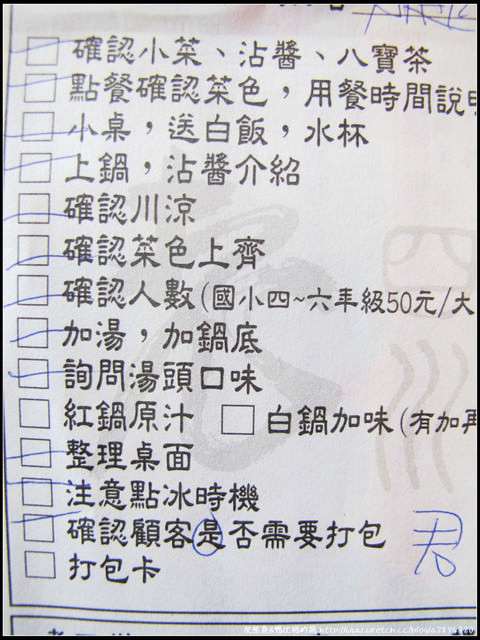 □ 確認小菜、沾醬、八寶茶
□ 點餐確認菜色，用餐時間說明
□ 小桌，送白飯，水杯
□ 上鍋，沾醬介紹
□ 確認川涼
□ 確認菜色上齊
□ 確認人數(國小四~六年級50元/大
□ 加湯，加鍋底
□ 詢問湯頭口味
□ 紅鍋原汁 □ 白鍋加味(有加再
□ 整理桌面
□ 注意點冰時機
□ 確認顧客是否需要打包
君
□ 打包卡